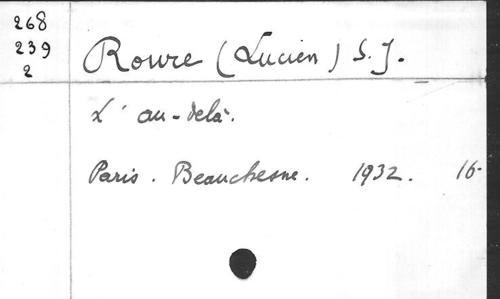 268
239
2
Roure (Lucien) S.J.
L'au-delà.
Paris. Beauchesne. 1932. 16-